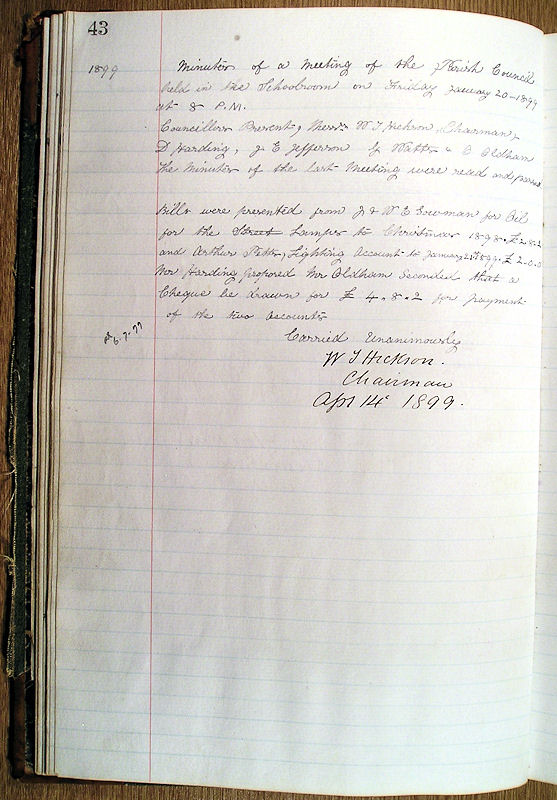 43
1899
Minutes of a Meeting of the Parish Council
held in the Schoolroom on Friday January 20-1899
at 8 P.M.
Councillors Present, Messrs W T Hickson, Chairman,
D Harding, J E Jefferson G Watts & E Oldham
The Minutes of the last Meeting were read and passed
Bills were presented from J & W E Bowman for Oil
for the Street Lamps to Christmas 1898. £2.8.2
and Arthur Lighting Account to January 21st 1899. £2.0.0
Mr Harding proposed Mr Oldham Seconded that a
Cheque be drawn for £4.8.2 for payment
of the two accounts
Carried Unanimously
W T Hickson.
Chairman
Apr 14th 1899.